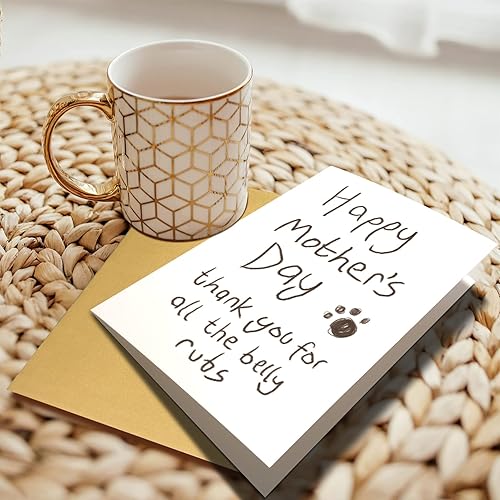 Happy
Mother's
Day
thank you for
all the belly
rubs